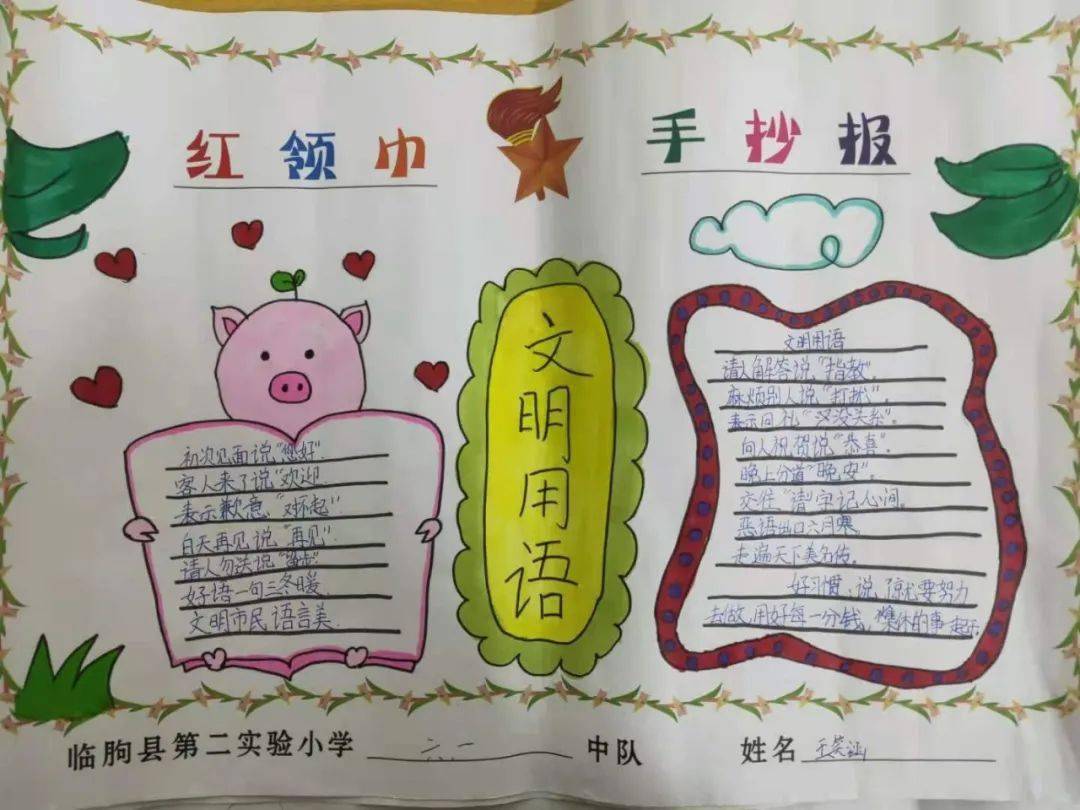 红领巾 手抄报
初次见面说"您好".
客人来了说"欢迎.
表示歉意."对怀起".
白天再见说"再见".
请人勿送说
好语一句三冬暖.
文明市民语言美.
文明用语
文明用语
请人解答说"指教".
麻烦别人说"打扰".
表示回礼"没关系".
向人祝贺说"恭喜".
晚上分道"晚安".
交往"请"字记心间.
恶语出口六月寒.
走遍天下美名传.
好习惯,说 就要努力
去做,用好每一分钱,集体的事
临朐县第二实验小学 六.一 中队 姓名 王